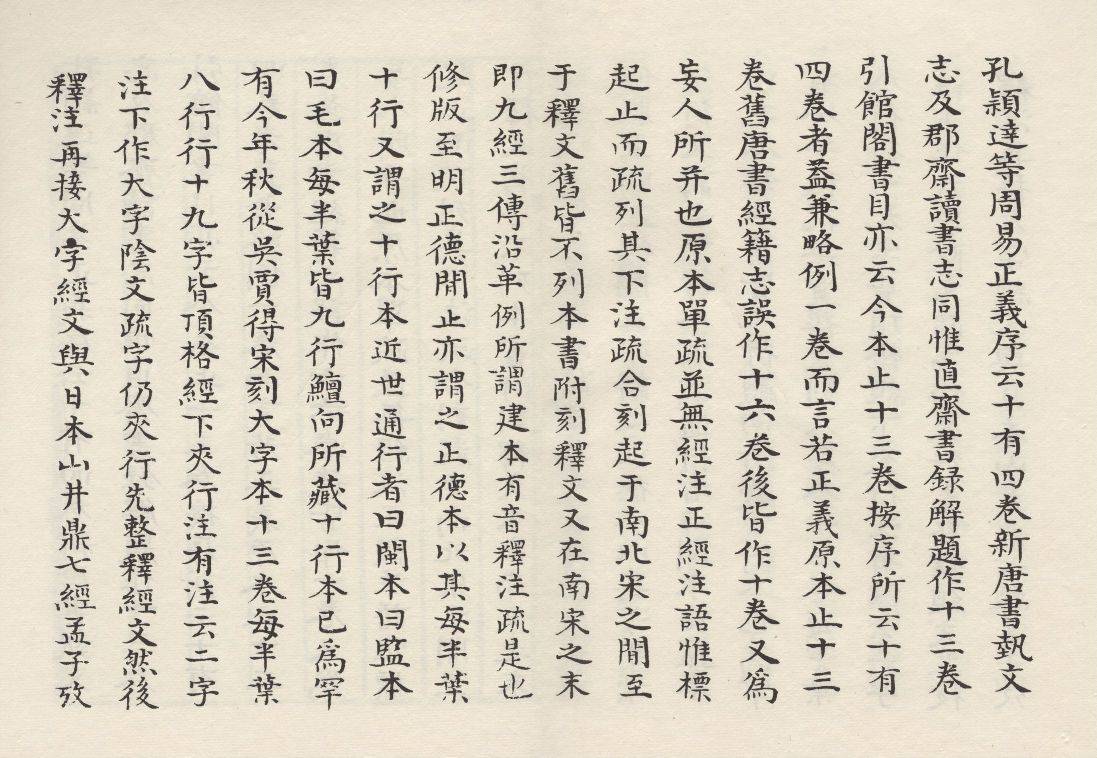 孔穎達等周易正義序云十有四卷新唐書埶文
志及郡齋讀書志同惟直齋書録解題作十三卷
引館閣書目亦云今本止十三卷按序所云十有
四卷者葢兼略例一卷而言若正義原本止十三
卷舊唐書經籍志誤作十六卷後皆作十卷又為
妄人所并也原本單疏並無經注正經注語惟標
起止而疏列其下注疏合刻起于南北宋之閒至
于釋文舊皆不列本書附刻釋文又在南宋之末
即九經三傳沿革例所謂建本有音釋注疏是也
修版至明正德閒止亦謂之正德本以其每半葉
十行又謂之十行本近世通行者曰閩本曰監本
曰毛本每半葉皆九行鱣向所藏十行本已爲罕
有今年秋從吳賈得宋刻大字本十三卷每半葉
八行行十九字皆頂格經下夾行注有注云二字
注下作大字陰文疏字仍夾行先整釋經文然後
釋注再接大字經文與日本山井鼎七經孟子攷